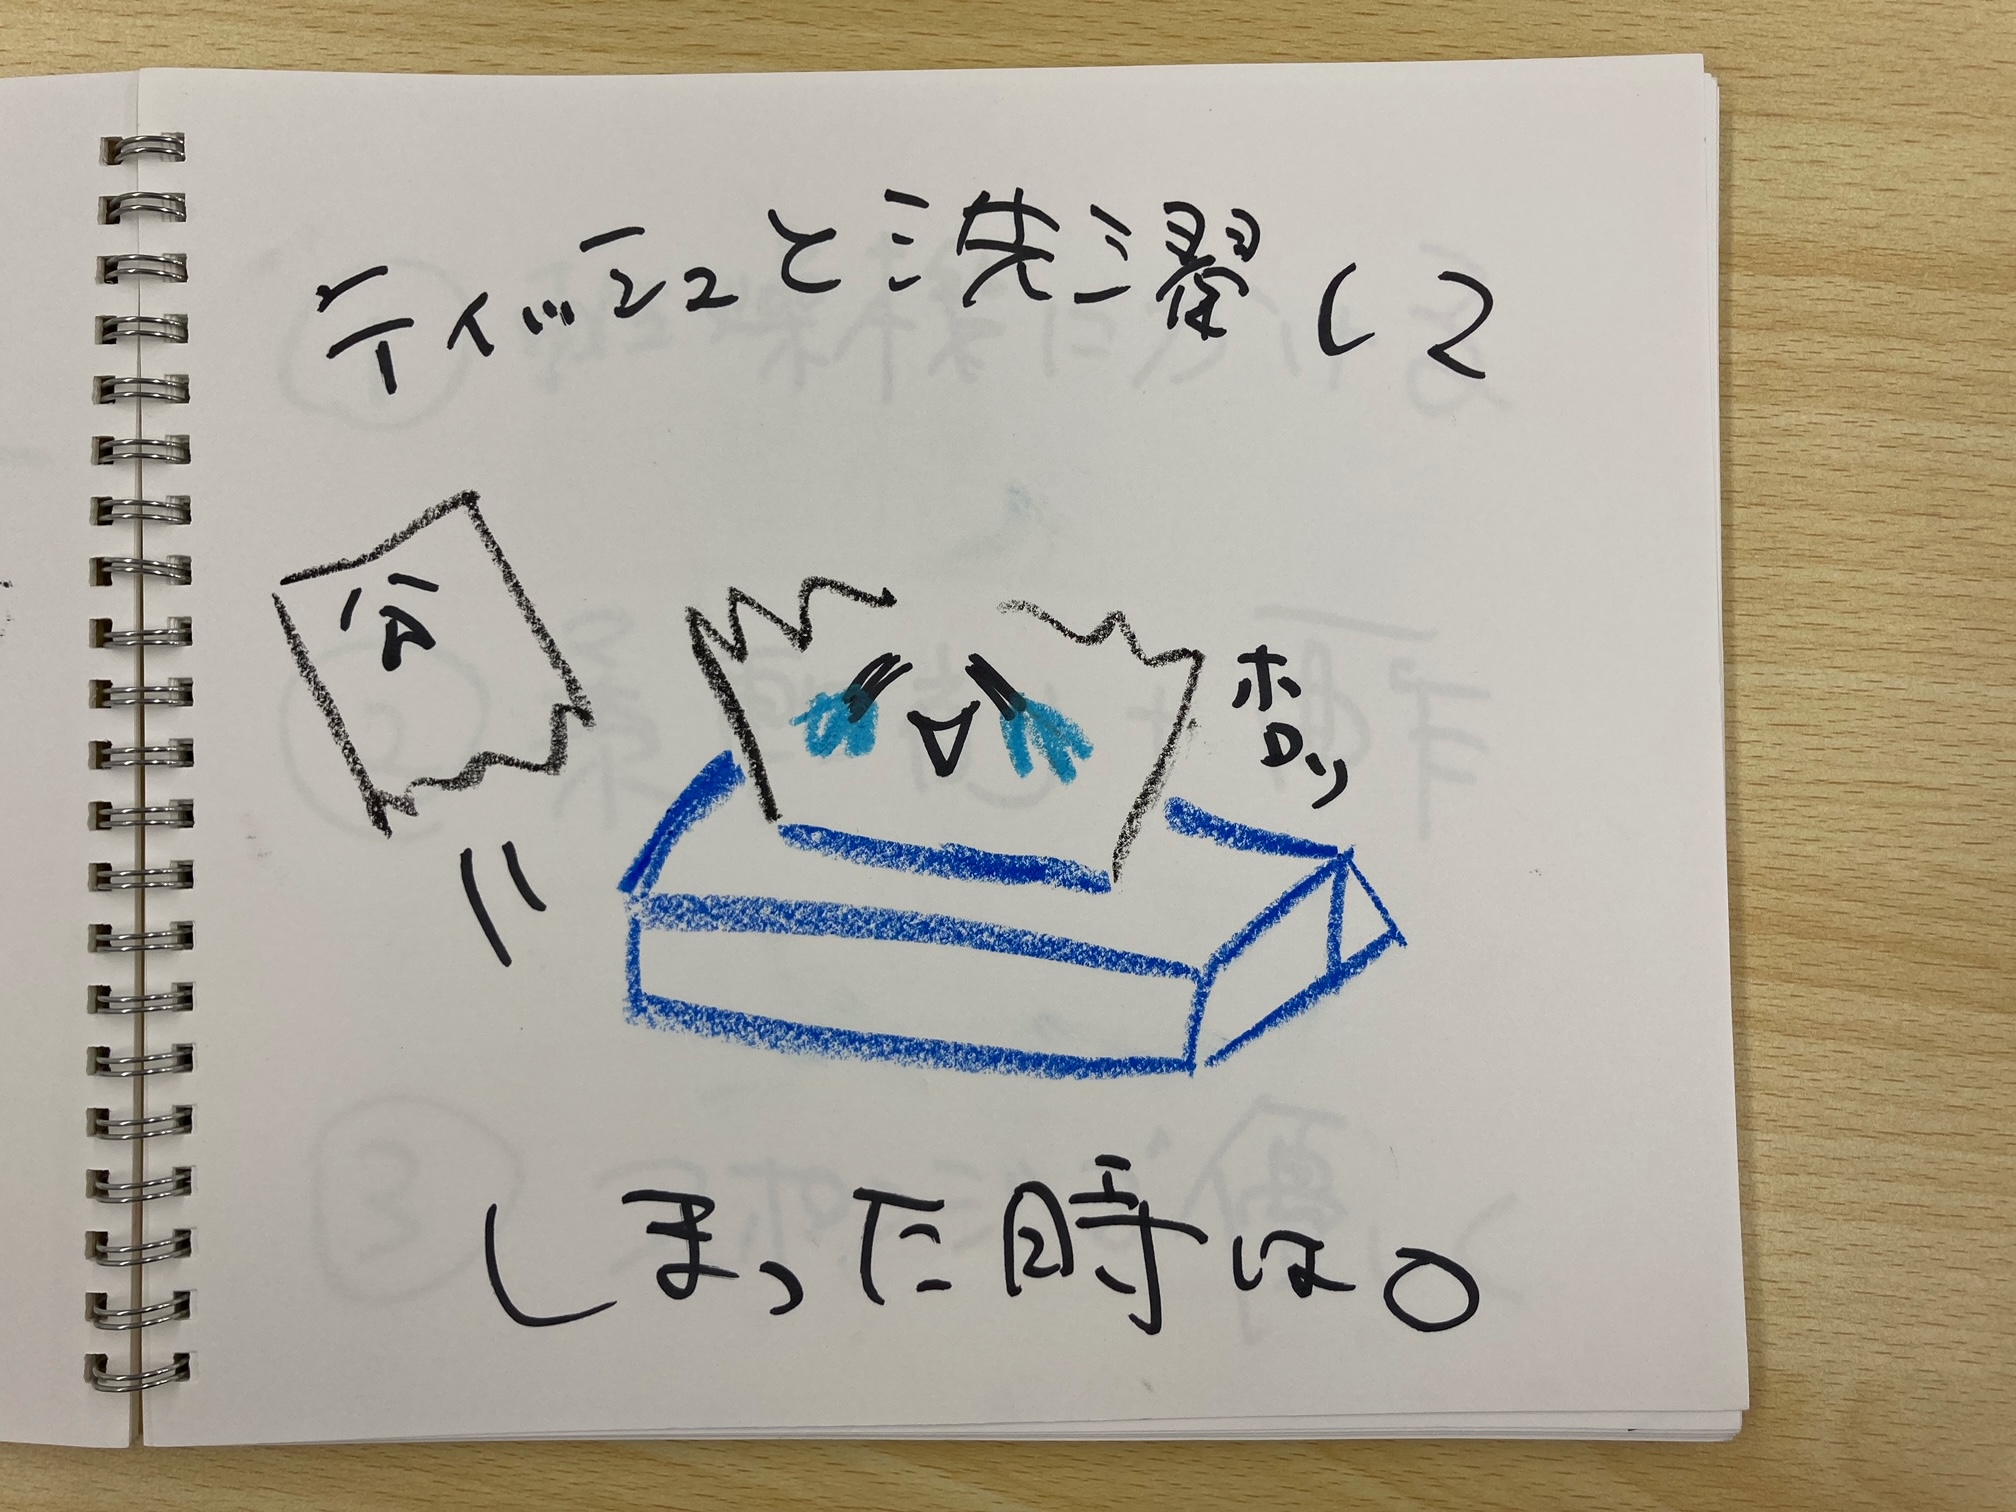 ティッシュと洗濯して
ホロッ
しまった時は。